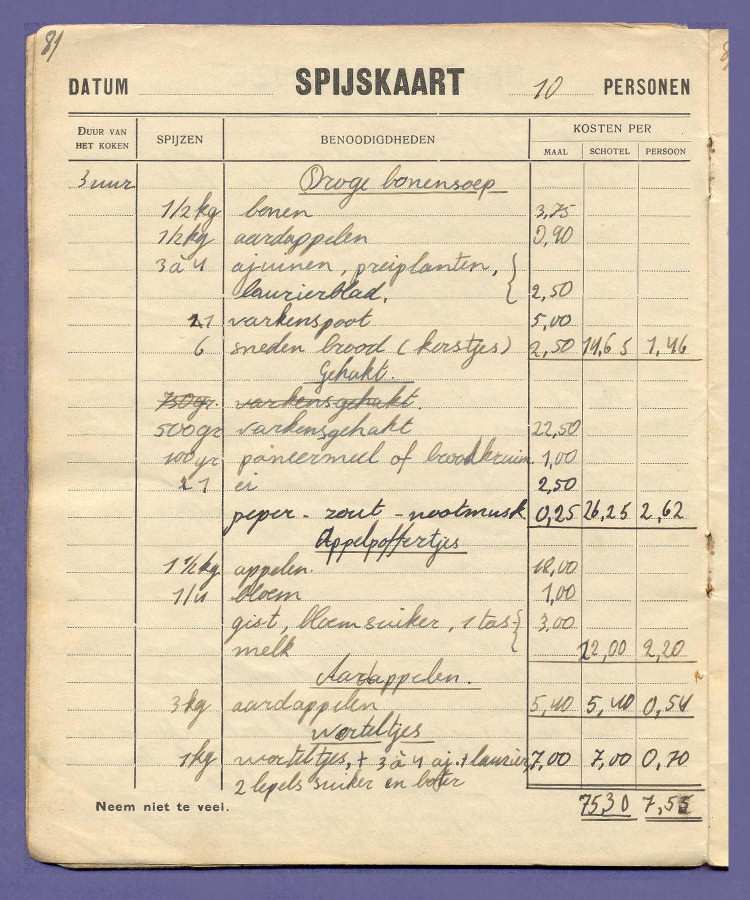 81
DATUM SPIJSKAART 10 PERSONEN
DUUR VAN HET KOKEN SPIJZEN BENOODIGDHEDEN KOSTEN PER
MAAL SCHOTEL PERSOON
3 uur Droge bonensoep
1/2 kg bonen 3,75
1/2 kg aardappelen 0,90
3 à 4 ajuinen, preiplanten,
laurierblad. 2,50
1 varkenspoot 5,00
6 sneden brood (korstjes) 2,50 14,65 1,46
Gehakt.
750gr. varkensgehakt.
500gr varkensgehakt 22,50
100 gr paneermeel of broodkruim 1,00
1 ei 2,50
peper - zout - nootmusk 0,25 26,25 2,62
Appelpoffertjes
1 1/2 kg appelen. 18,00
1/4 bloem 1,00
gist, bloemsuiker, 1 tas 3,00
melk 22,00 2,20
Aardappelen.
3 kg aardappelen 5,40 5,40 0,54
worteltjes
1 kg worteltjes, + 3 à 4 aj. + laurier, 7,00 7,00 0,70
2 lepels suiker en boter
Neem niet te veel. 75,30 7,53